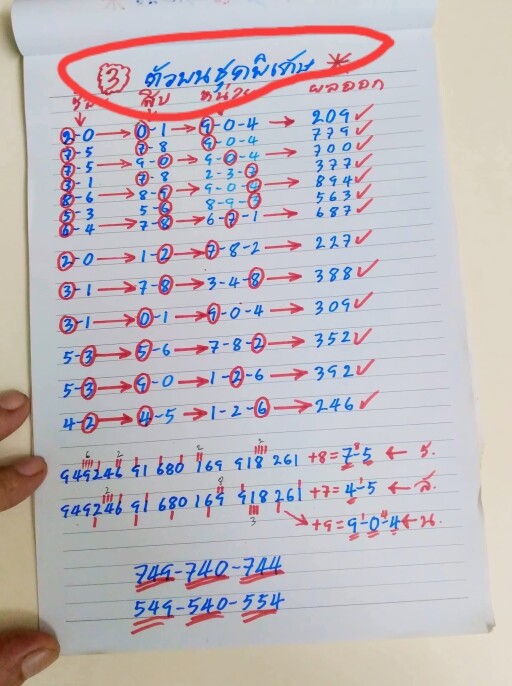 ③ ตัวบนชุดพิเศษ *
สิบ หน่วย ผลออก
2-0 → 0-1 → 9-0-4 → 209 ✓
7-5 7-8 9-0-4 779
7-5 → 9-0 → 9-0-4 → 700 ✓
3-1 7-8 2-3-7 377
8-6 → 8-9 → 9-0-4 → 894 ✓
5-3 5-6 8-9-3 563
6-4 → 7-8 → 6-7-1 → 687 ✓
2-0 → 1-2 → 7-8-2 → 227 ✓
3-1 → 7-8 → 3-4-8 → 388 ✓
3-1 → 0-1 → 9-0-4 → 309 ✓
5-3 → 5-6 → 7-8-2 → 352 ✓
5-3 → 9-0 → 1-2-6 → 392 ✓
4-2 → 4-5 → 1-2-6 → 246 ✓
6 2 2 2 8
949246 91 680 169 918 261 +8=7-5 ← ร.
2 8
949246 91 680 169 918 261 +7=4-5 ← สิ.
3
→ +9=9-0-4 ← น.
749-740-744
549-540-554